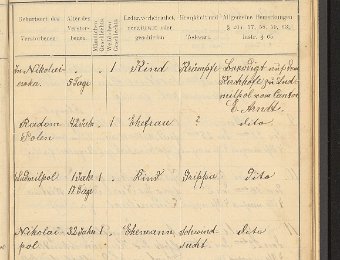 Geburtsort des Verstorbenen.
Alter des Verstorbenen.
Männlichen Geschlechts
Weiblichen Geschlechts
Ledig, verheiratet, verwitwet oder geschieden.
Krankheit und
Allgemeine Bemerkungen
Nikolai-
5 Tage
1
Kind
Krämpfe
Beerdigt auf dem
Kirchhofe zu Lud-
milpol vom Cantor
E. Arndt.
Radom
Polen
42 Jahr
1
Ehefrau
?
dito
Ludwilpol
1 Jahr
17 Tage
1
Kind
Grippe
dito
Nikolai
pol
32 Jahr
1
Ehemann
Schwind
sucht
dito